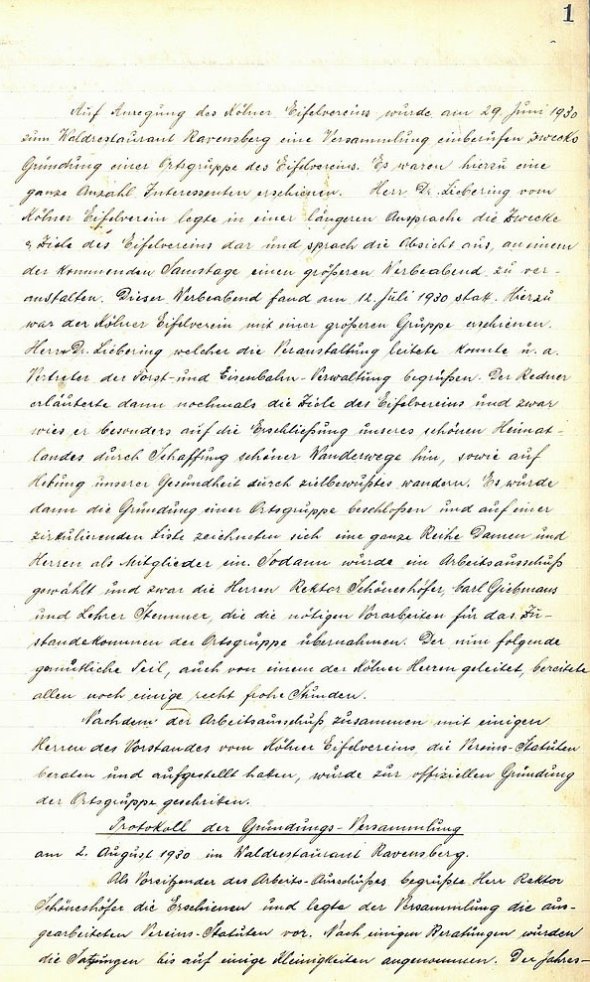 1
Auf Anregung des Kölner Eifelvereins wurde am 29. Juni 1930
zum Waldrestaurant Ravensberg eine Versammlung einberufen zwecks
Gründung einer Ortsgruppe des Eifelvereins. Es waren hierzu eine
ganze Anzahl Interessenten erschienen. Herr Dr. Liebering vom
Kölner Eifelverein legte in einer längeren Ansprache die Zwecke
& Ziele des Eifelvereins dar und sprach die Absicht aus, an einem
der kommenden Samstage einen größeren Werbeabend zu ver-
anstalten. Dieser Werbeabend fand am 12. Juli 1930 statt. Hierzu
war der Kölner Eifelverein mit einer größeren Gruppe erschienen.
Herr Dr. Liebering welcher die Veranstaltung leitete konnte u. a.
Vertreter der Forst- und Eisenbahn-Verwaltung begrüßen. Der Redner
erläuterte dann nochmals die Ziele des Eifelvereins und zwar
wies er besonders auf die Erschließung unseres schönen Heimat-
landes durch Schaffung schöner Wanderwege hin, sowie auf
Hebung unserer Gesundheit durch zielbewußtes wandern. Es wurde
dann die Gründung einer Ortsgruppe beschloßen und auf einer
zirkulierenden Liste zeichneten sich eine ganze Reihe Damen und
Herren als Mitglieder ein. Sodann wurde ein Arbeitsausschuß
gewählt und zwar die Herren Rektor Schöneshöfer, Carl Giebmanns
und Lehrer Stemmer, die die nötigen Vorarbeiten für das Zu-
standekommen der Ortsgruppe übernahmen. Der nun folgende
gemütliche Teil, auch von einem der Kölner Herren geleitet, bereitete
allen noch einige recht frohe Stunden.
Nachdem der Arbeitsausschuß zusammen mit einigen
Herren des Vorstandes vom Kölner Eifelvereins, die Vereins-Statuten
beraten und aufgestellt hatten, wurde zur offiziellen Gründung
der Ortsgruppe geschriten.
Protokoll der Gründungs-Versammlung
am 2. August 1930 im Waldrestaurant Ravensberg.
Als Vorsitzender des Arbeits-Ausschußes begrüßte Herr Rektor
Schöneshöfer die Erschienen und legte der Versammlung die aus-
gearbeiteten Vereins-Statuten vor. Nach einigen Beratungen wurden
die Satzungen bis auf einige Kleinigkeiten angenommen. Der Jahres-